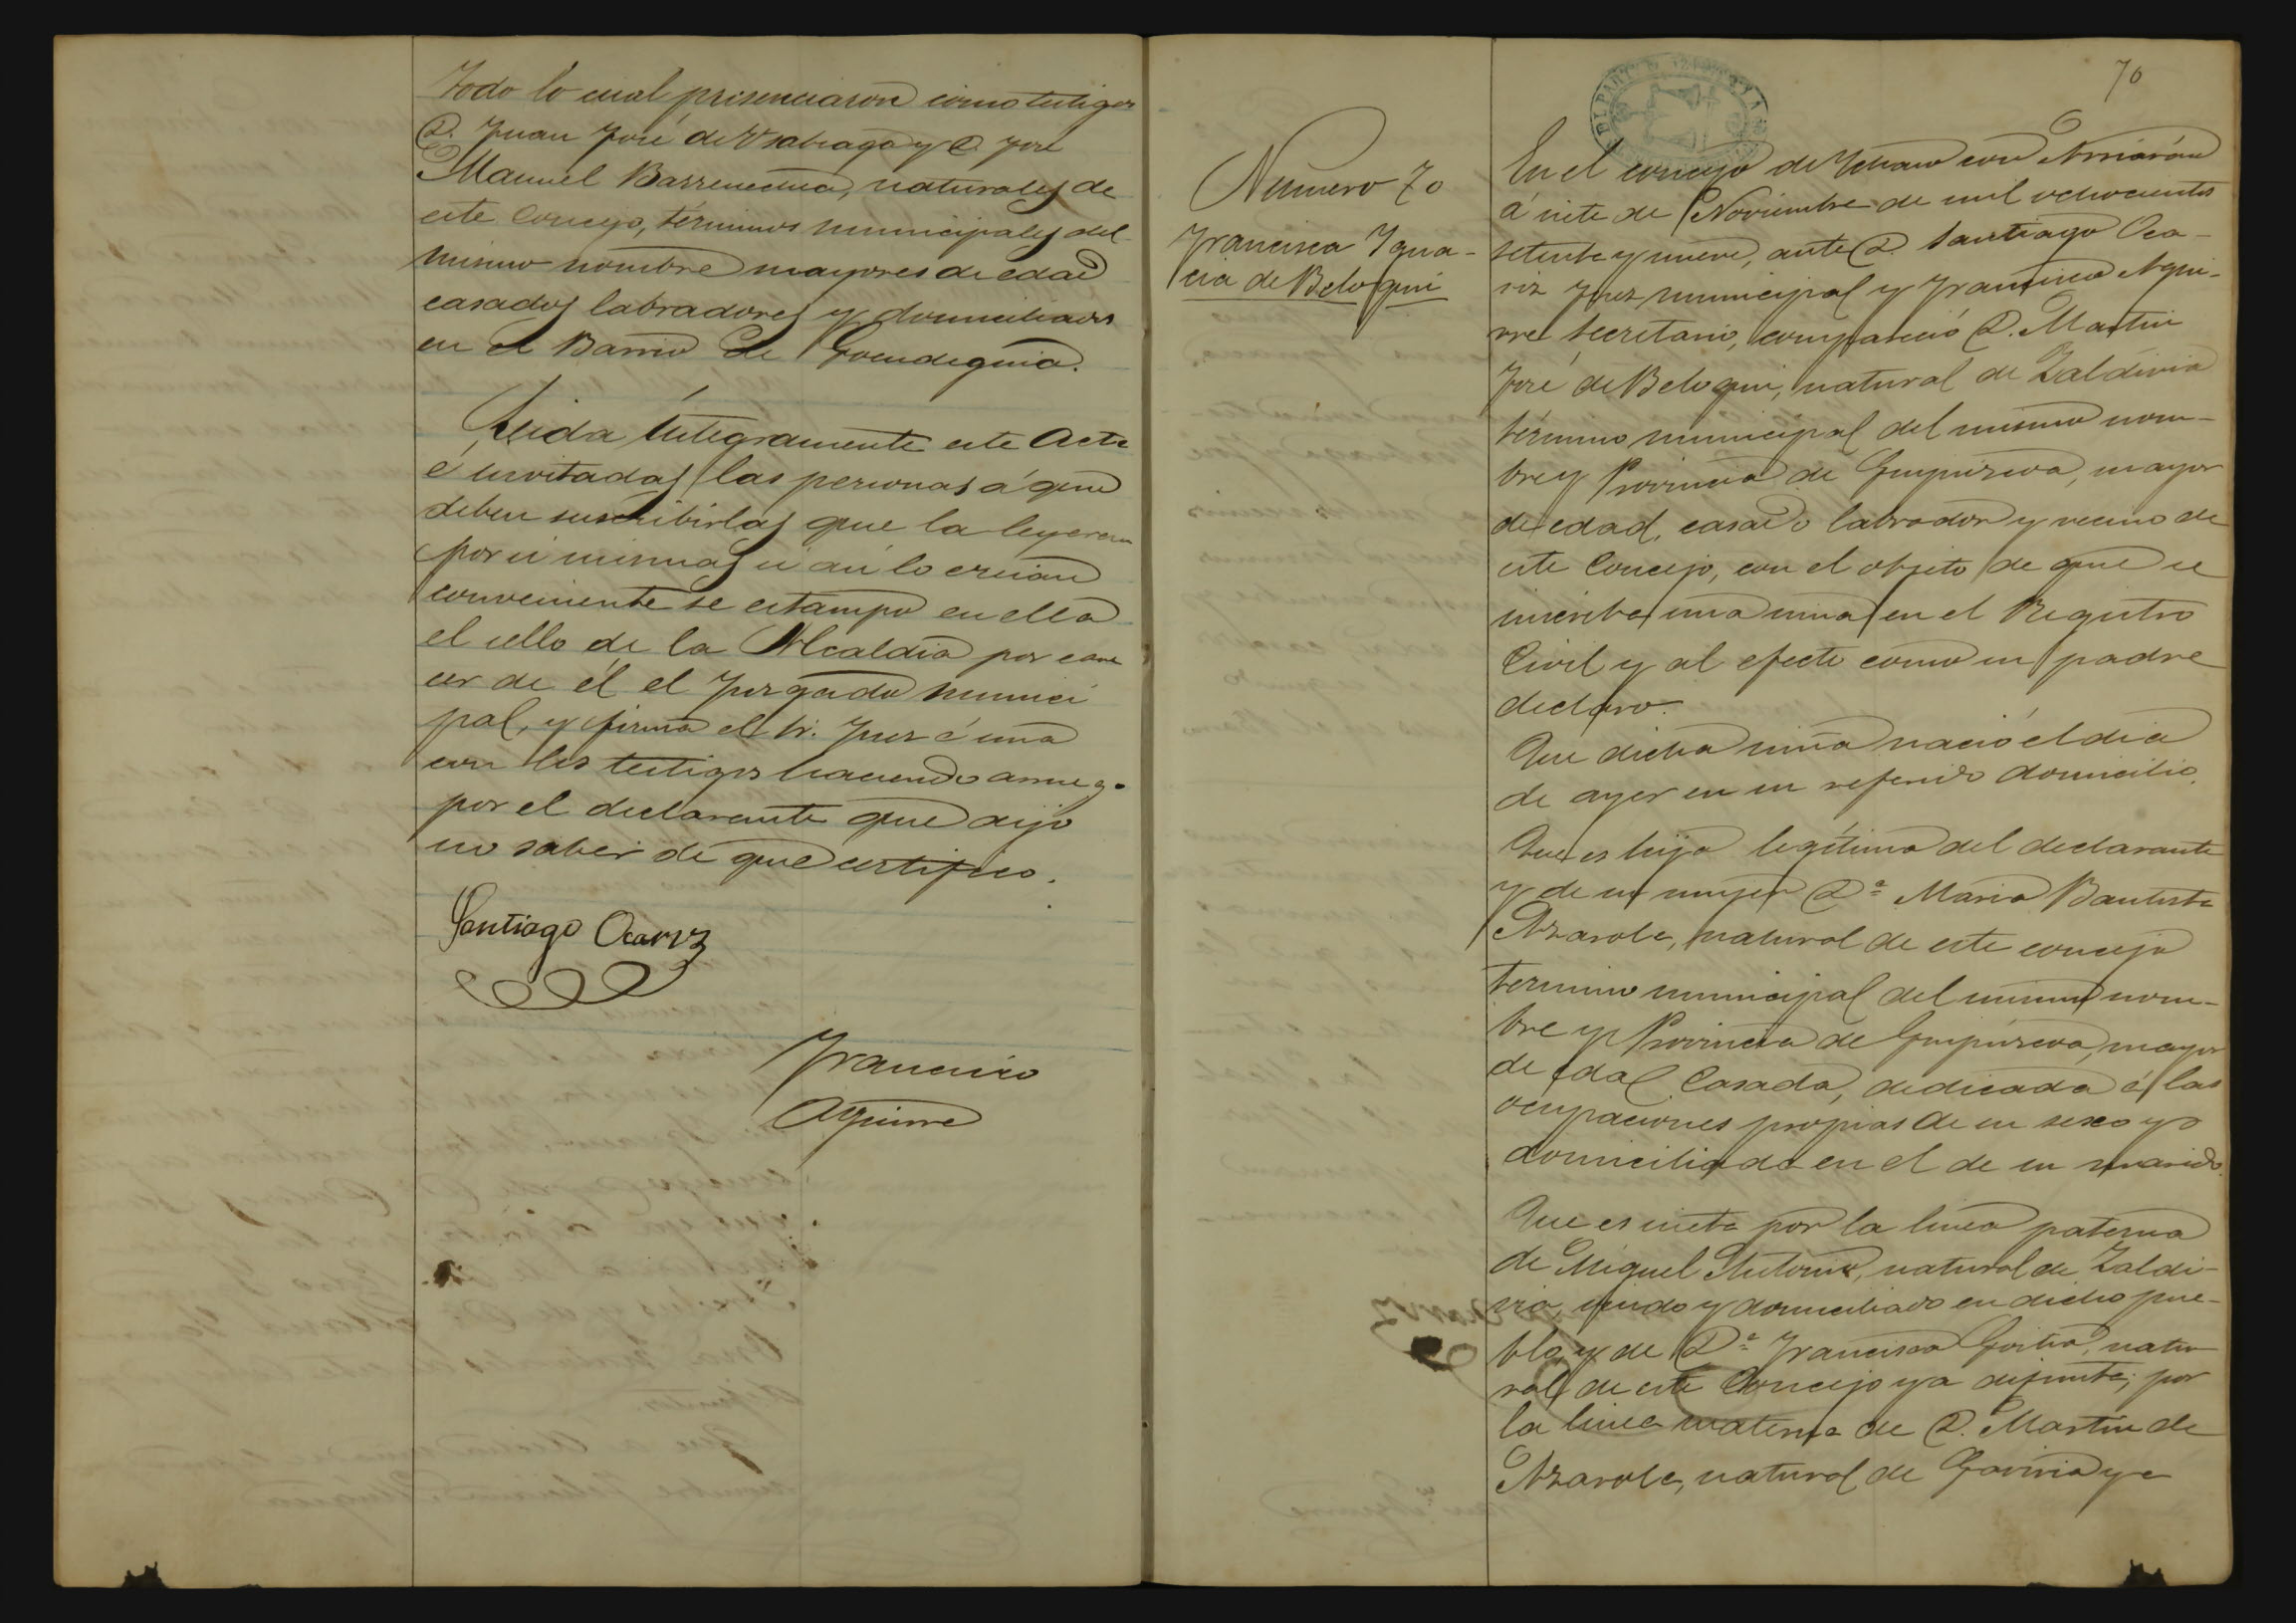 Todo lo cual presenciaron como testigos
D. Juan José de Usabiaga y D. José
Manuel Barrenechea, naturales de
este Concejo, términos municipales del
mismo nombre mayores de edad
casados labradores y domiciliados
en el Barrio de
Leida íntegramente este Acta
é invitadas las personas á que
deben suscribirlas que la leyeran
por si mismas si asi lo creian
conveniente se estampó en ella
el sello de la Alcaldia por care
cer de él el Juzgado munici
pal, y firma el Sr. Juez é una
con los testigos haciendo arruego
por el declarante que dijo
no saber de que certifico.
Santiago Ocariz
Francisco
Aguirre
70
Número 70
Francisca Ygna-
cia de Beloqui
En el concejo de Ychaso con Arriarán
á siete de Noviembre de mil ochocientos
setenta y nueve, ante D. Santiago Oca-
riz Juez municipal y Francisco Agui-
rre Secretario, compareció D. Martin
José de Beloqui, natural de Zaldivia
término municipal del mismo nom-
bre y Provincia de Guipúzcoa, mayor
de edad, casado labrador y vecino de
este Concejo, con el objeto de que se
inscriba una niña en el Registro
Civil y al efecto como su padre
declaro.
Que dicha niña nació el dia
de ayer en su referido domicilio.
Que es hija legítima del declarante
y de su mujer Dª Maria Bautista
Azarola, natural de este concejo
termino municipal del mismo nom-
bre y Provincia de Guipúzcoa, mayor
de edad Casada, dedicada á las
ocupaciones propias de su sexo y
domiciliada en el de su marido.
Que es nieta por la linea paterna
de Miguel Antonio, natural de Zaldi-
via, viudo y domiciliado en dicho pue-
blo y de Dª Francisca Goitia, natu
ral de este Concejo ya difunta; por
la linea materna de D. Martin de
Azarola, natural de Gaviria y a